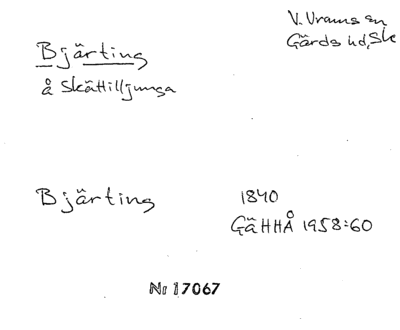 V. Vrams sn
Gärds hd, Sk
Bjärting
å Skättilljunga
Bjärting
1840
GäHHÅ 1958:60
Nr 17067